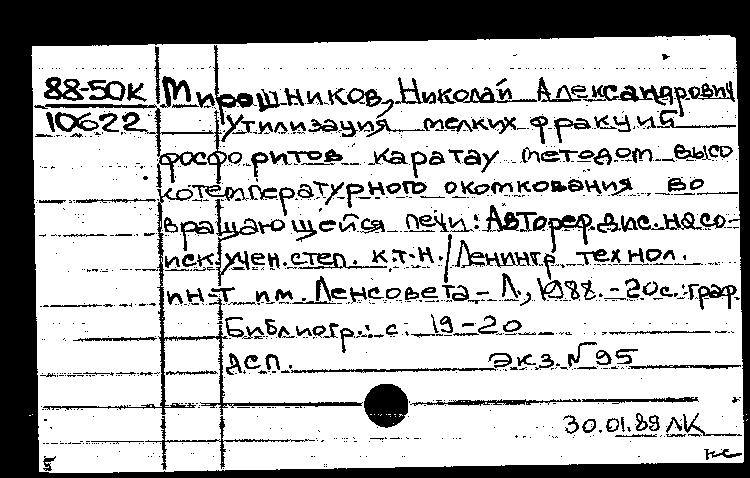 88-50К Мирошников, Николай Александрович
10622 Утилизация мелких фракций
фосфоритов каратау методом высо
котемпературного окомкования во
вращающейся печи: Автореф.дис.на со-
иск.учен.степ. к.т.н./Ленингр. технол.
ин-т им. Ленсовета - Л., 1988. - 20с.:граф.
Библиогр.: с. 19-20
ДСП. экз. № 95
30.01.89 ЛК